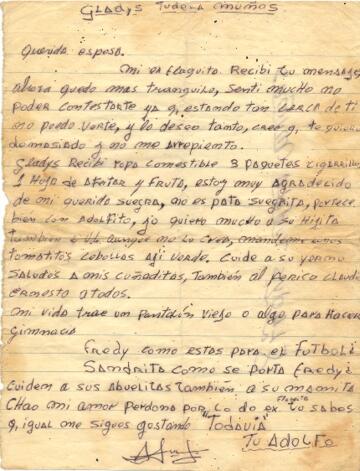 GLADYS TUDELA MUÑOS
Querida esposa.
Mi ex flaquita. Recibi tu mensaje
ahora quedo mas tranquilo, Senti mucho no
poder contestarte ya q, estando tan CERCA de ti
no puedo verte, y lo deseo tanto, creo q, te quiero
demasiado y no me arrepiento.
Gladys Recibi ropa comestible 3 paquetes cigarrillos
1 Hoja de afeitar y fruta, estoy muy agradecido
de mi querida suegra, no es pata suegrita, portece
bien con Adolfito, yo quiero mucho a su Hijita
tambien a Ud. aunque no lo crea, mandeme unos
tomatitos cebollas aji verde. Cuide a su yerno
Saludos a mis cuñaditas, también al perico Claudio
Ernesto a todos.
Mi vida trae un pantalon viejo o algo para Hacer
Gimnacia
Fredy como estas para el futbol è
Sandrita como se porta Fredy è
cuidem a sus abuelitas tambien a su mamita
Chao mi amor perdona por lo do ex. flaquita tu sabes
q, igual me sigues gostando "TODAVIA"
Tu ADOLFO